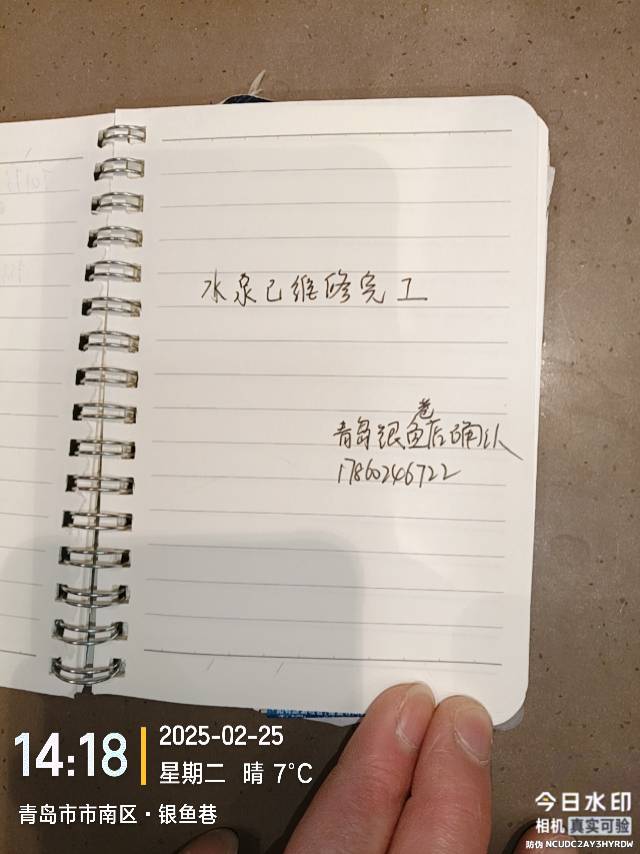 水泵已维修完工
巷
青岛银鱼店确认
17860246722
14:18
2025-02-25
星期二 晴 7℃
青岛市市南区·银鱼巷
今日水印
相机 真实可验
防伪 NCUDC2AY3HYRDW